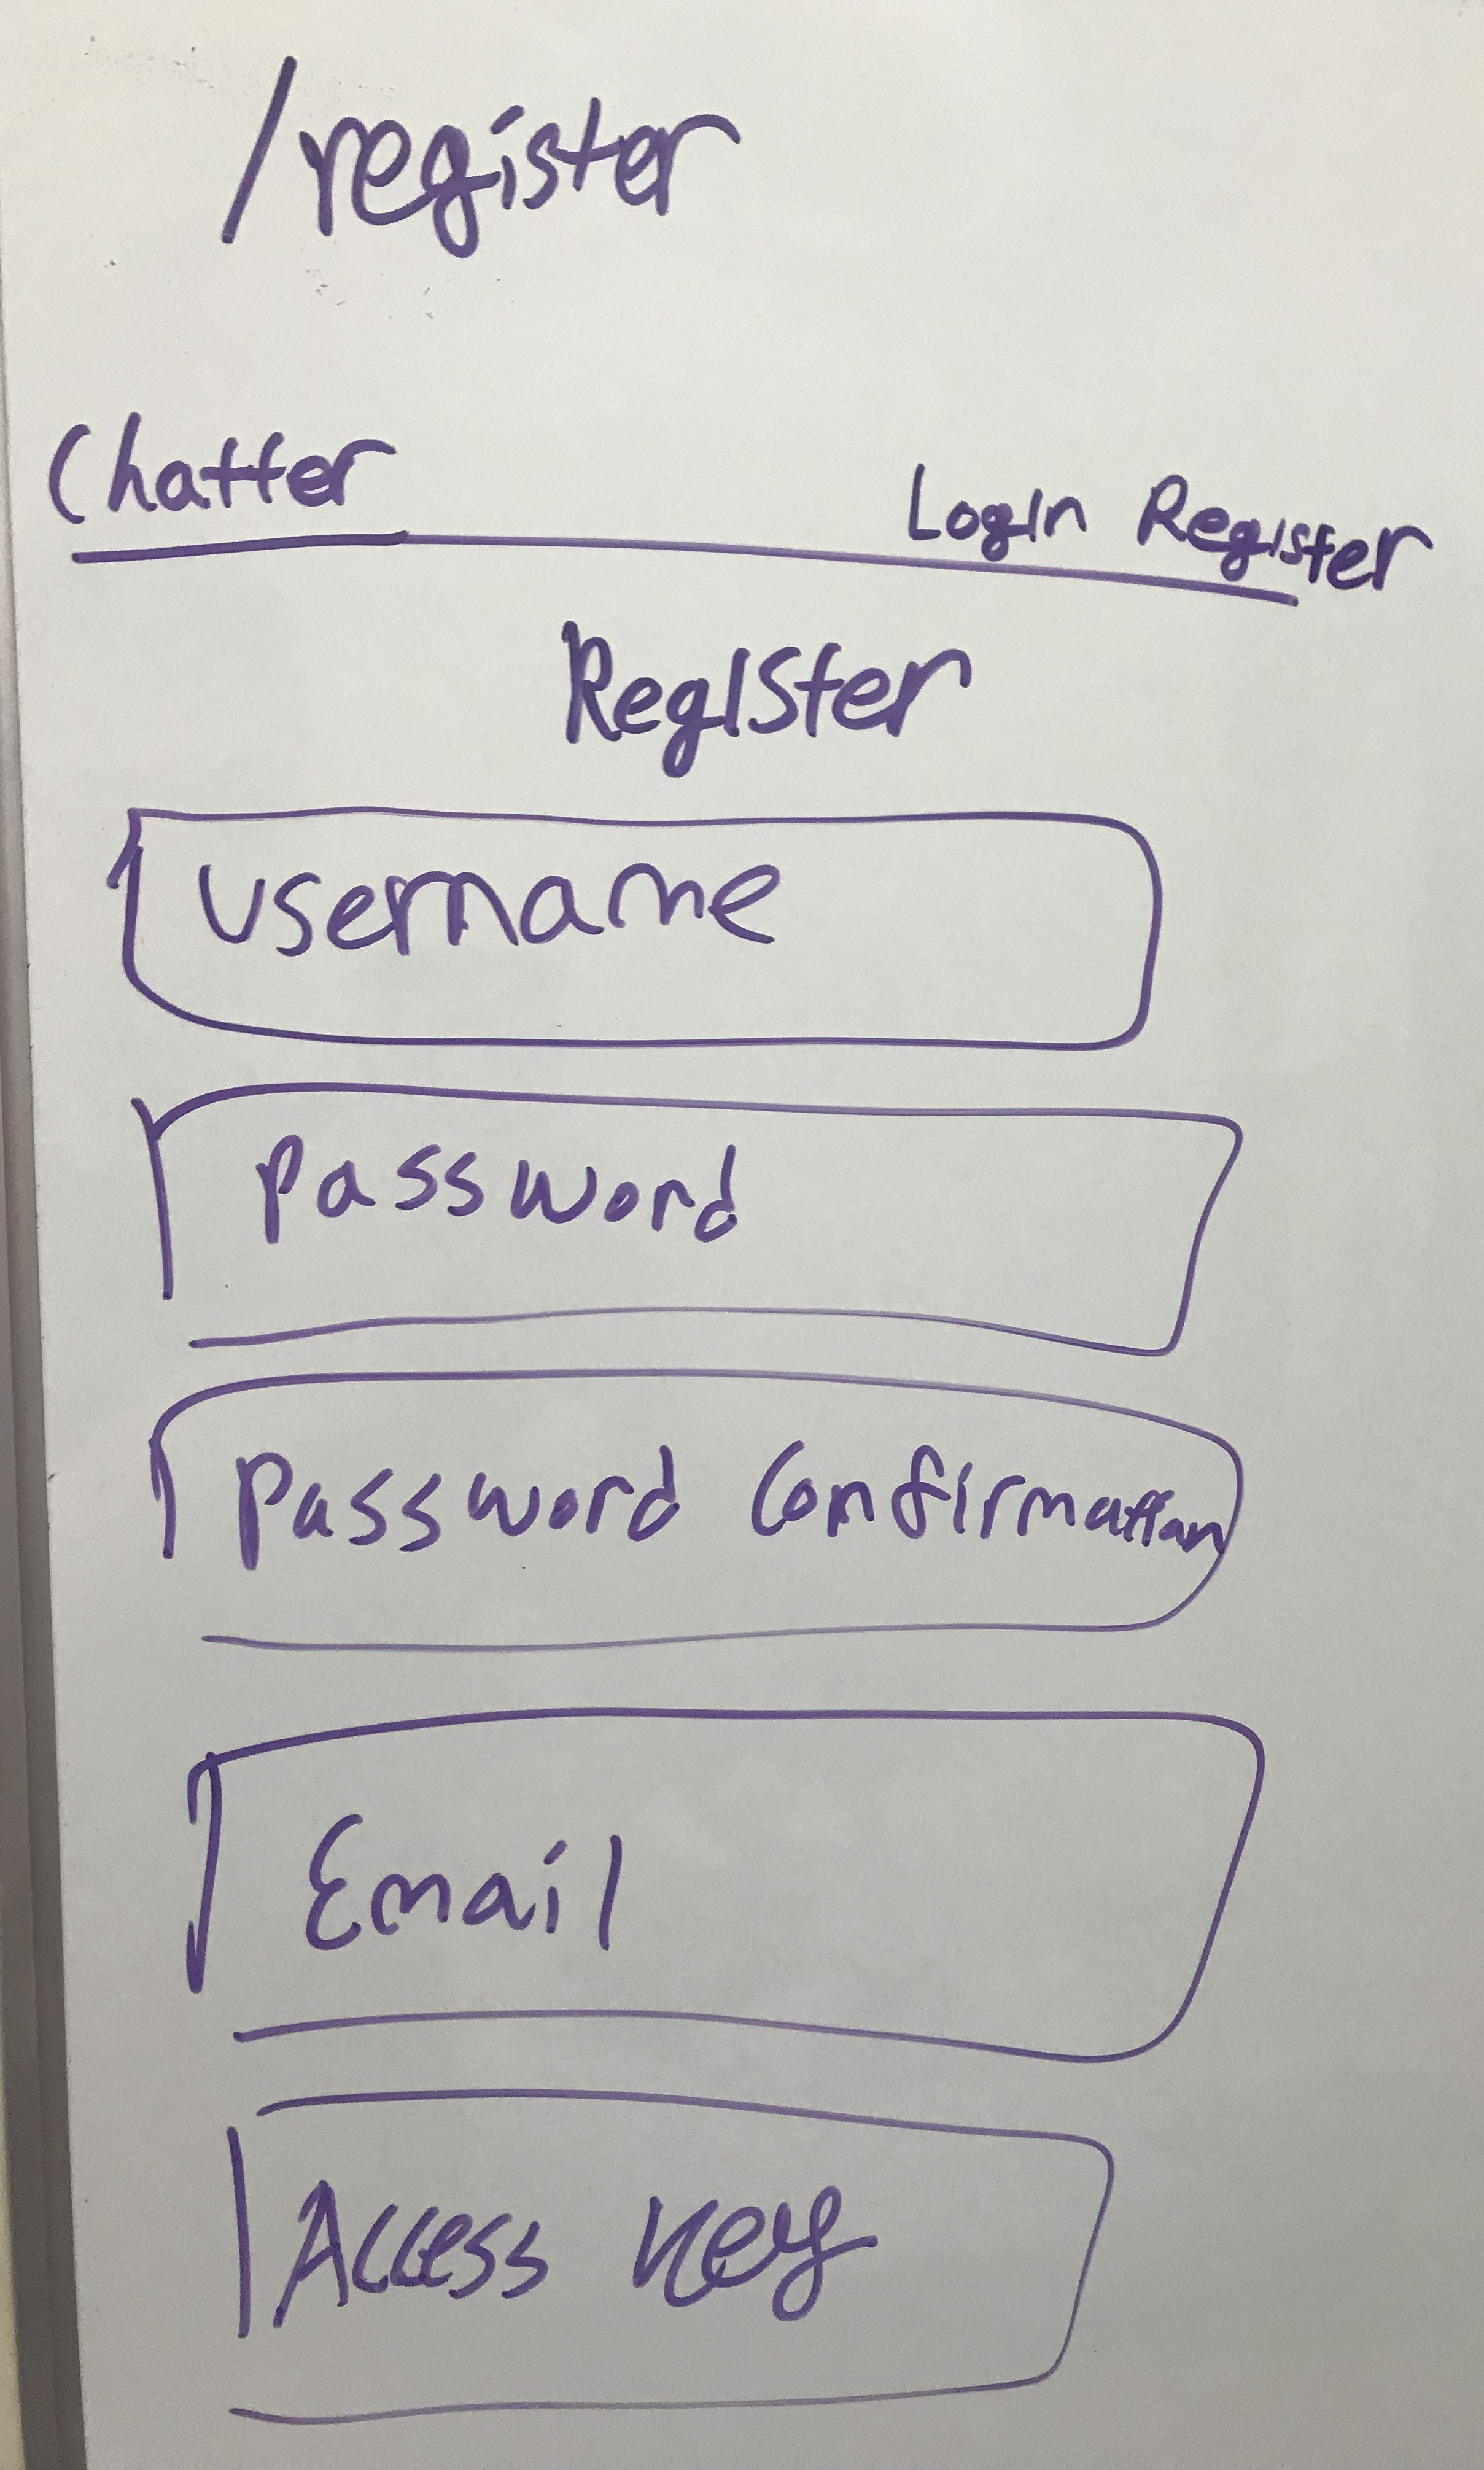 /register
Chatter Login Register
Register
username
password
password Confirmation
Email
Access key